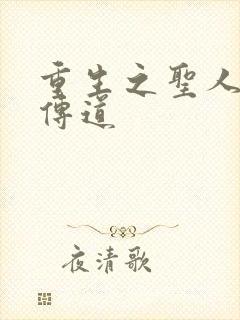 重生之聖人
傳道
夜清歌